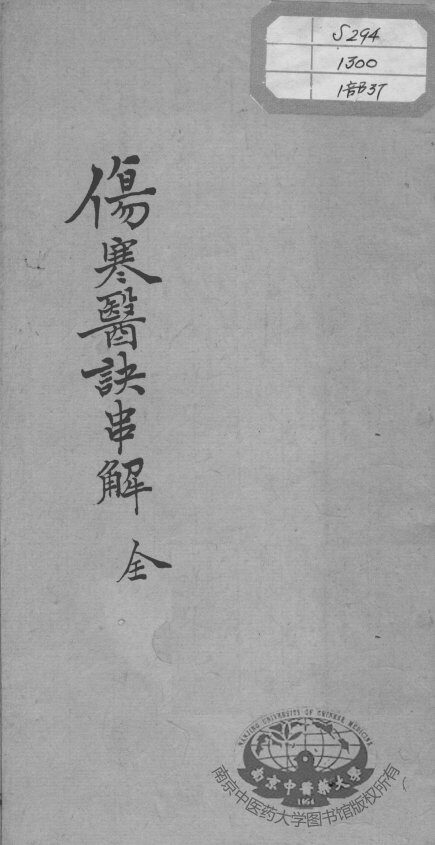 S294
1300
1部37
傷寒醫訣串解 全
NANJING UNIVERSITY OF CHINESE MEDICINE
南京中醫藥大學
1954
南京中医药大学图书馆版权所有